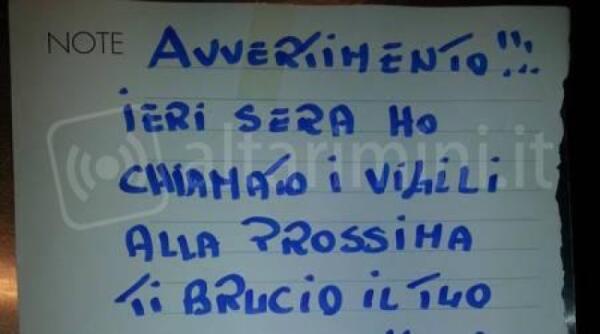 NOTE AVVERTIMENTO!!!
IERI SERA HO
CHIAMATO I VIGILI
altarimini.it
ALLA PROSSIMA
TI BRUCIO IL TUO